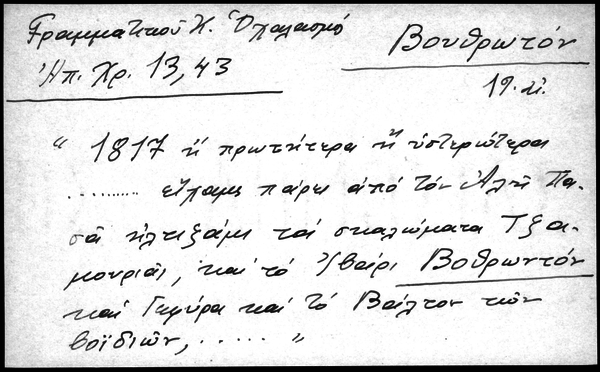 Γραμματικοῦ Κ. Ὁ χαλασμό
Ἀπ. Χρ. 13, 43
Βουθρωτόν
19. αἰ.
" 1817 ἤ πρωτήτερα ἤ ὑστεριώτερα
........... εἴχαμε πάρει ἀπό τόν Ἀλῆ Πα-
σᾶ ἠλτιζάμι τά σκαλώματα Τζα-
μουριᾶς, καί τό βιβάρι Βοθρωντόν
καί Γιμύρα καί τό Βάλτον τῶν
βοϊδιῶν, ..... "